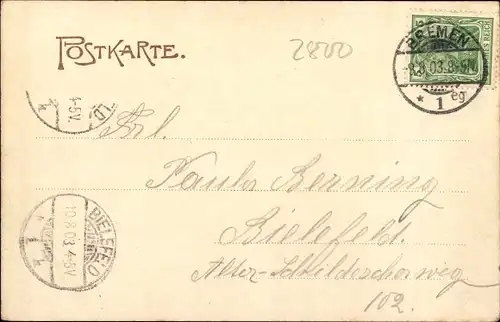 POSTKARTE.
2800
BREMEN
8.8.03.8-9N
* 1 eg
4-5V.
LD
Frl.
Paula Berning
Bielefeld.
Alter-Schildescherweg
102.
BIELEFELD
10.8.03.4-5V.